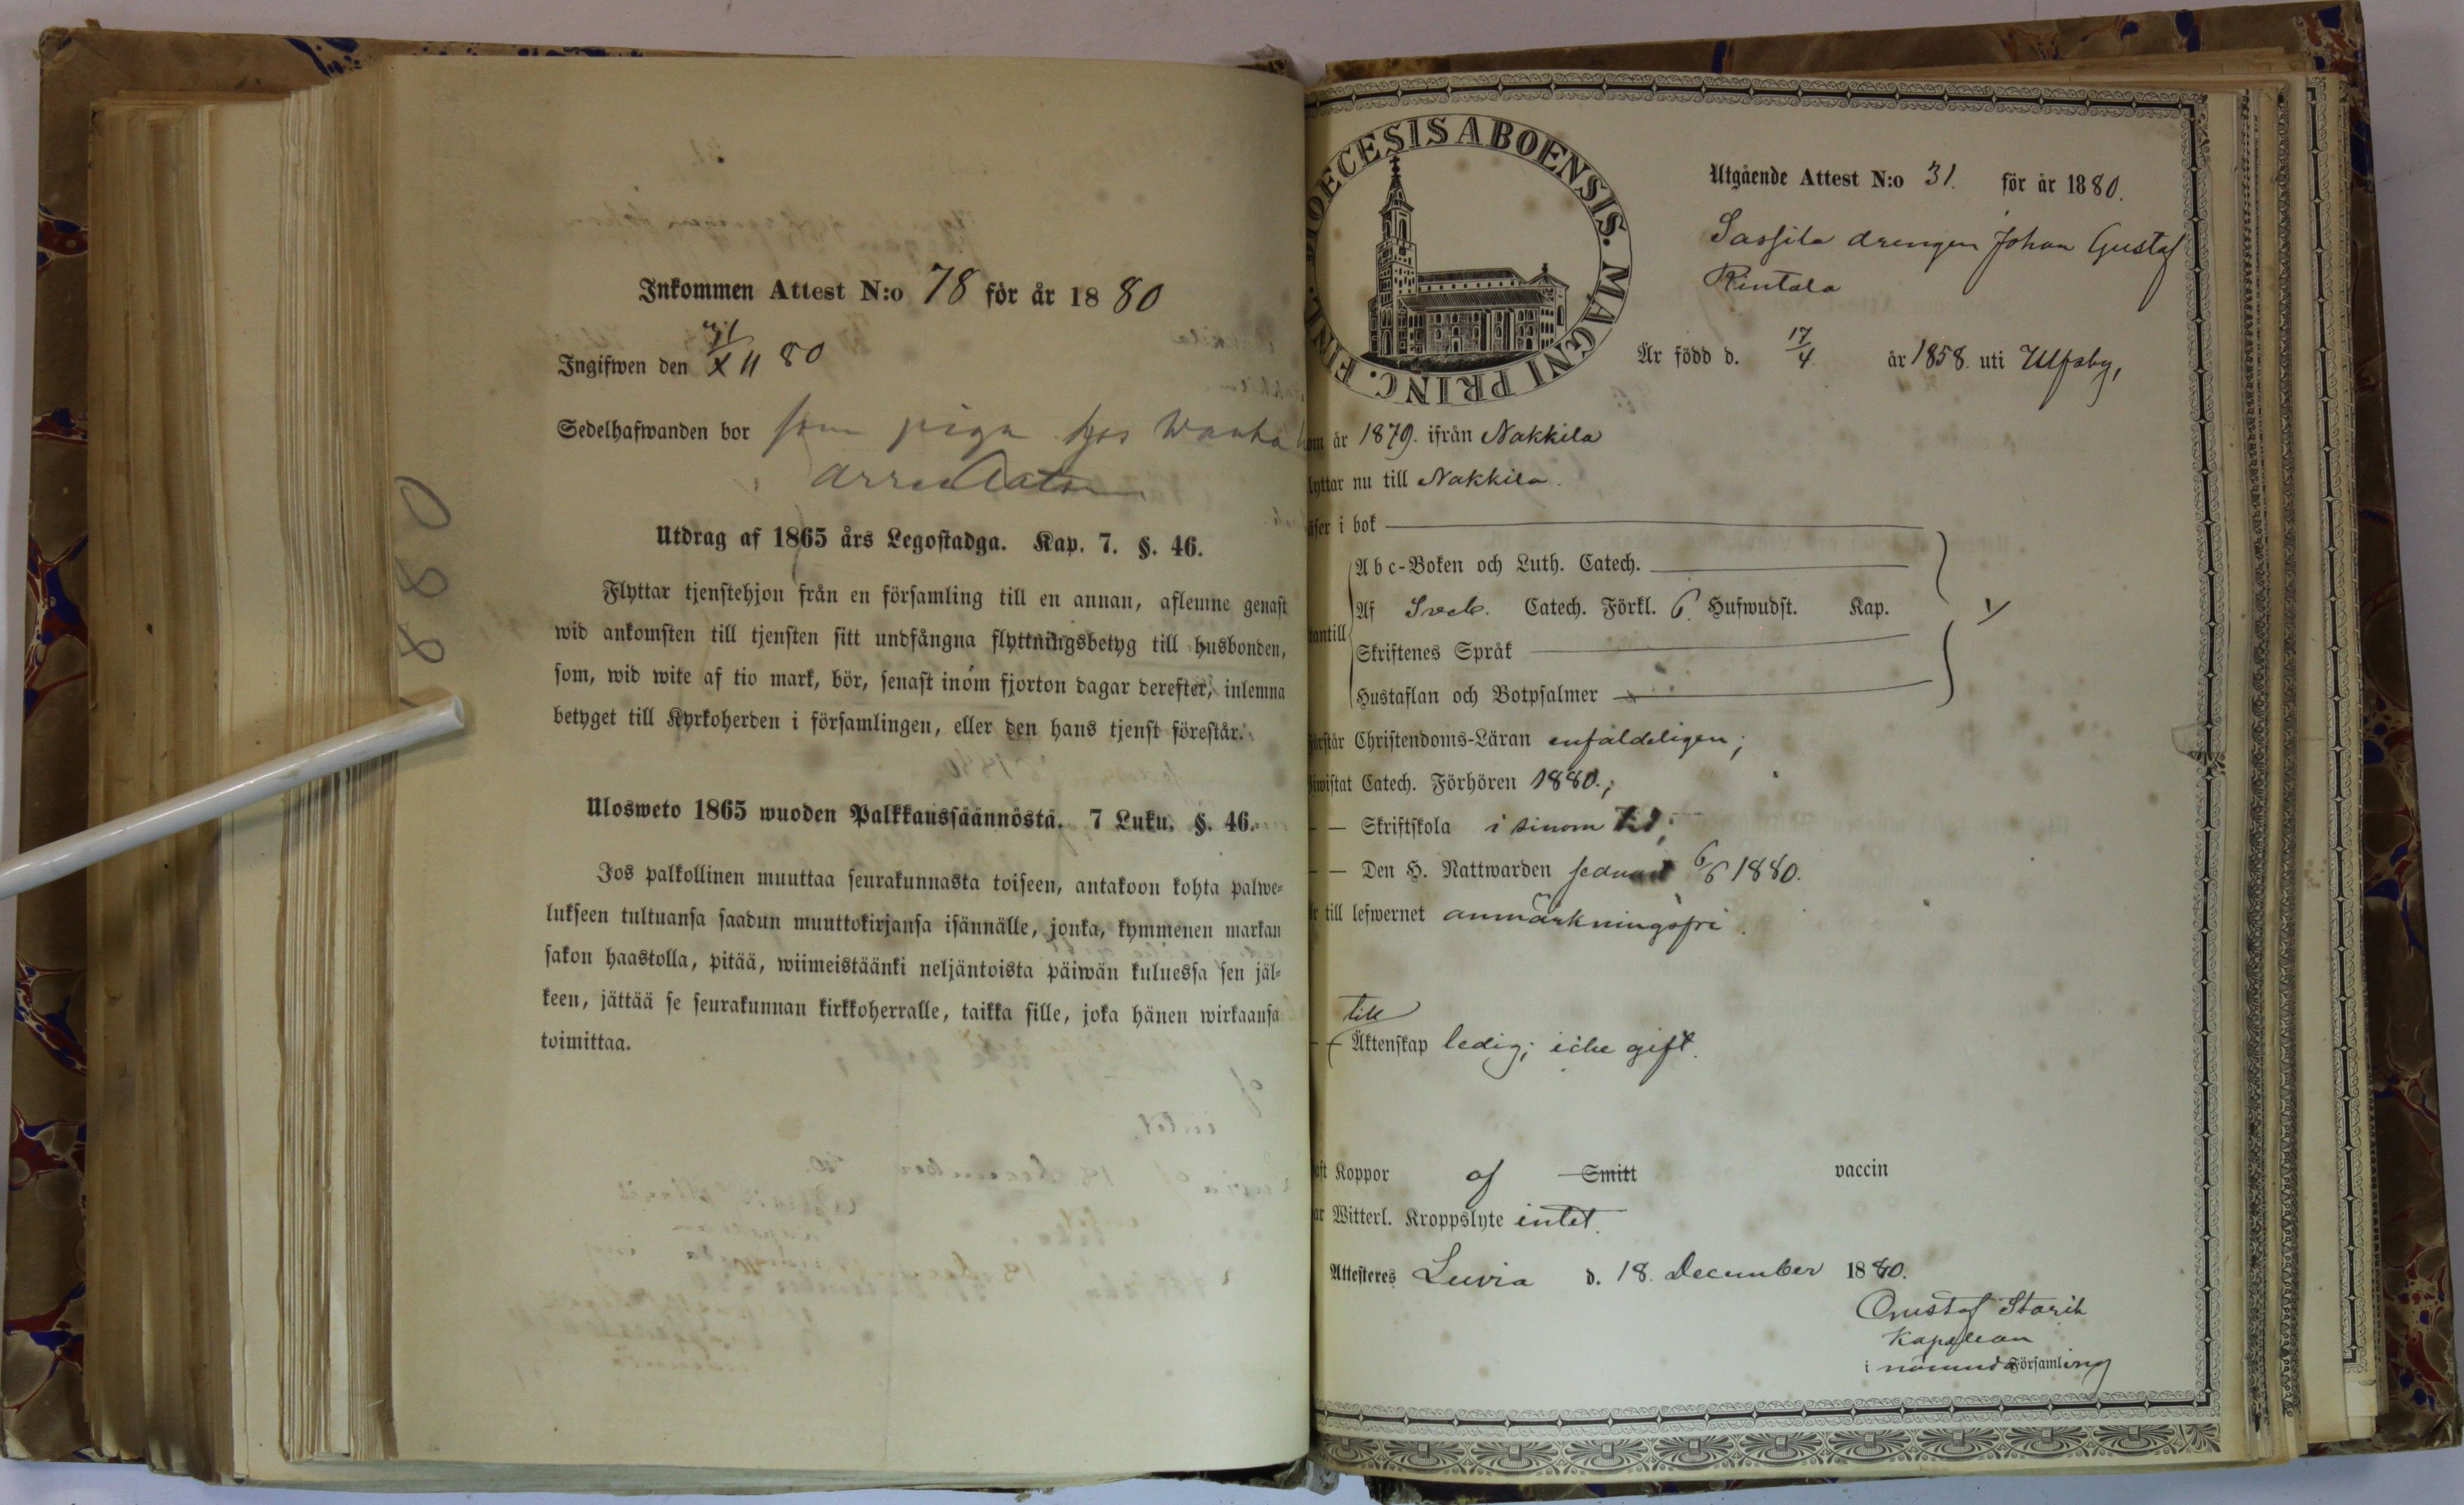 Inkommen Attest N:o 78 för år 1880
Ingifwen den 11 80
Sedelhafwanden bor som piga hos Wanha
Utdrag af 1865 års Legostadga. Kap. 7. §. 46.
Flyttar tjenstehjon från en församling till en annan, aflemne genast
wid ankomsten till tjensten sitt undfångna flyttningsbetyg till husbonden,
som, wid wite af tio mark, bör, senast inom fjorton dagar derefter, inlemna
betyget till Kyrkoherden i församlingen, eller den hans tjenst förestår.
Ulosweto 1865 wuoden Palkkaussäännöstä. 7 Luku. §. 46.
Jos palkollinen muuttaa seurakunnasta toiseen, antakoon kohta palwe-
lukseen tultuansa saadun muuttokirjansa isännälle, jonka, kymmenen markan
sakon haastolla, pitää, wiimeistäänki neljäntoista päiwän kuluessa sen jäl-
keen, jättää se seurakunnan kirkkoherralle, taikka sille, joka hänen wirkaansa
toimittaa.
1880
DIOECESIS ABOENSIS. MAGNI PRINC. FINL.
Utgående Attest N:o 31. för år 1880.
Sassila drengen Johan Gustaf
Rintala
Är född d. 17/4. år 1858. uti Ulfsby,
om år 1879. ifrån Nakkila
lyttar nu till Nakkila.
äser i bok
Abc-Boken och Luth. Catech.
Af Sveb. Catech. Förkl. 6. Hufwudst. Kap.
antill
Skriftenes Språk
Hustaflan och Botpsalmer
örstår Christendoms-Läran enfaldeligen;
iwistat Catech. Förhören 1880.;
— — Skriftskola i sinom tid;
— — Den H. Nattwarden sednast 6/6 1880.
r till lefwernet anmärkningsfri.
till
— — Äktenskap ledig; icke gift.
aft Koppor af Smitt vaccin
ar Witterl. Kroppslyte intet.
Attesteres Luvia d. 18. December 1880.
Gustaf Starck
Kapellan
i nämnda Församling